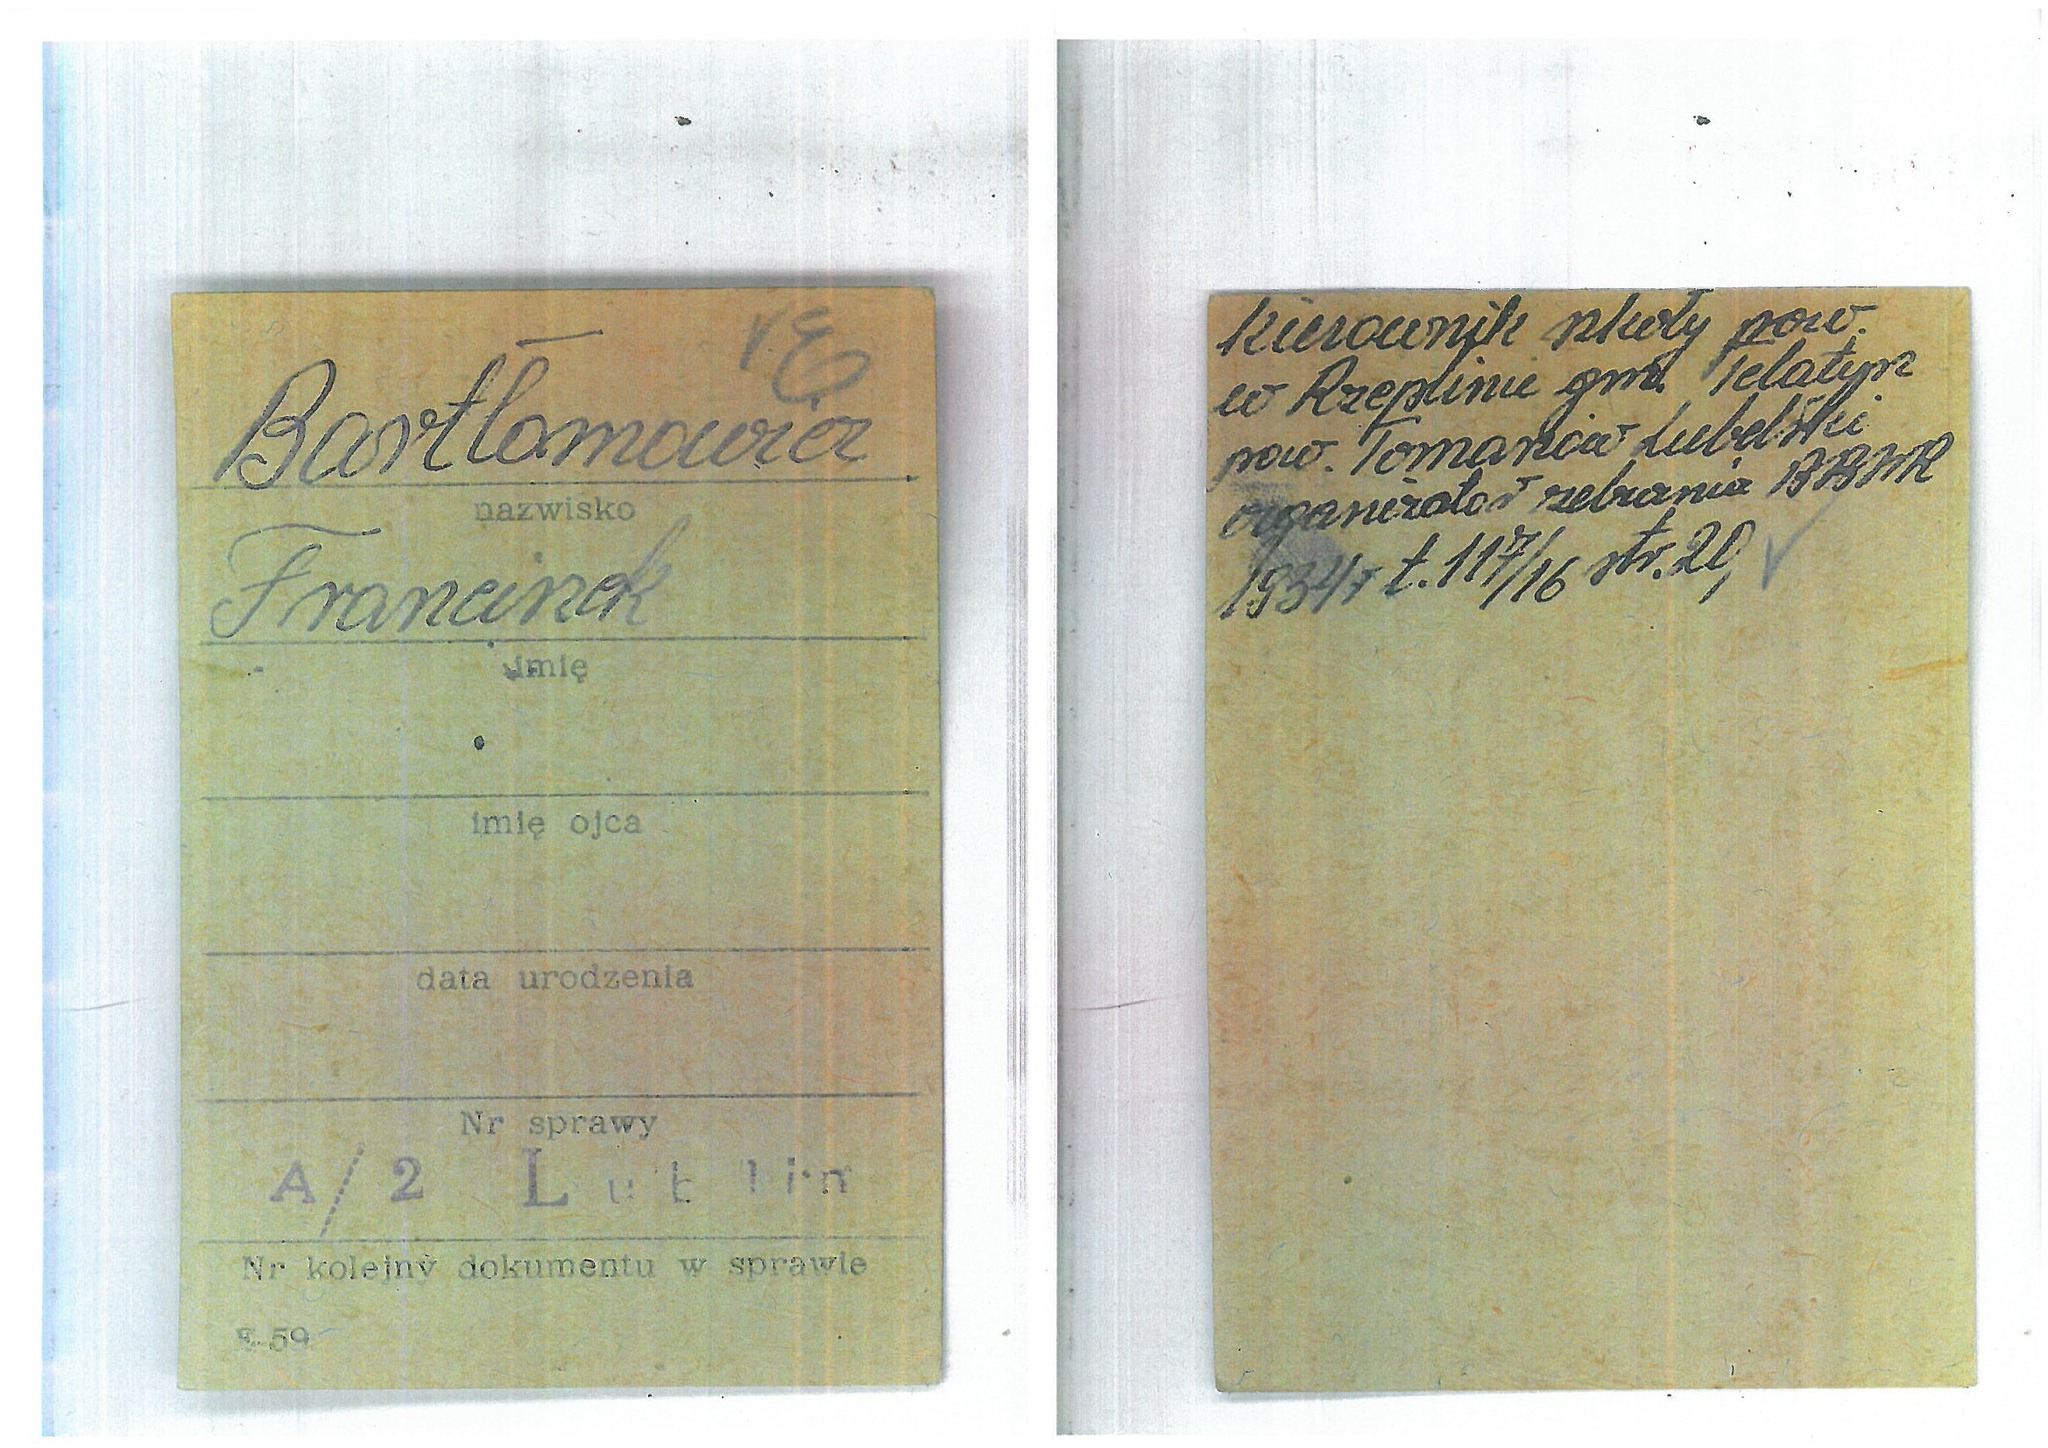 v. E
Bartłomowicz
nazwisko
Franciszek
imię
imię ojca
data urodzenia
Nr sprawy
A/2 Lublin
Nr kolejny dokumentu w sprawie
E-59
Kierownik szkoły pow.
w Rzeplinie gm. Telatyn
pow. Tomaszów Lubelski
organizator zebrania BBWR
1934r t. 117/16 str. 20,